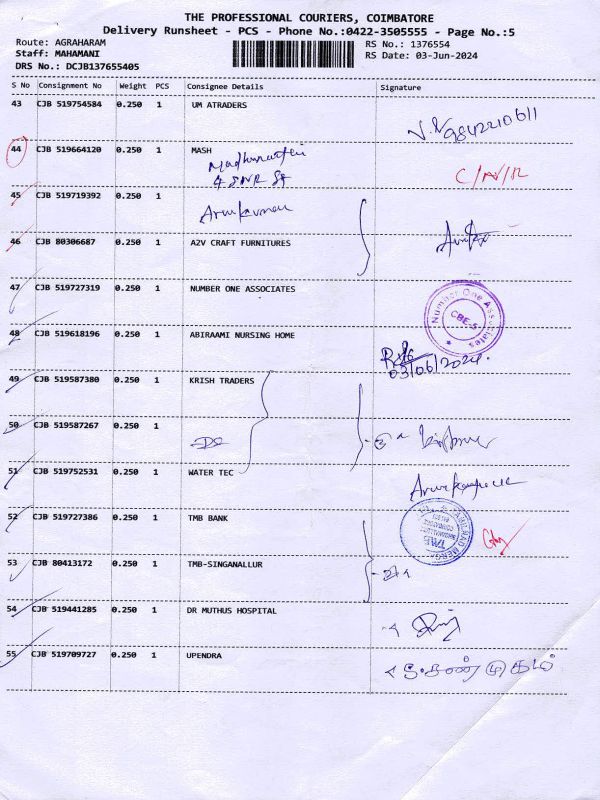 THE PROFESSIONAL COURIERS, COIMBATORE
Delivery Runsheet - PCS - Phone No.:0422-3505555 - Page No.:5
Route: AGRAHARAM
RS No.: 1376554
Staff: MAHAMANI
RS Date: 03-Jun-2024
DRS No.: DCJB137655405
S No Consignment No Weight PCS Consignee Details Signature
43 CJB 519754584 0.250 1 UM ATRADERS
9842210611
44 CJB 519664120 0.250 1 MASH
45 CJB 519719392 0.250 1 Arunkumar
46 CJB 80306687 0.250 1 A2V CRAFT FURNITURES
47 CJB 519727319 0.250 1 NUMBER ONE ASSOCIATES
Number One Associates
CBE-5.
48 CJB 519618196 0.250 1 ABIRAAMI NURSING HOME
03/06/2024.
49 CJB 519587380 0.250 1 KRISH TRADERS
50 CJB 519587267 0.250 1
51 CJB 519752531 0.250 1 WATER TEC
52 CJB 519727386 0.250 1 TMB BANK
TMB
53 CJB 80413172 0.250 1 TMB-SINGANALLUR
54 CJB 519441285 0.250 1 DR MUTHUS HOSPITAL
55 CJB 519709727 0.250 1 UPENDRA
சண்முகம்